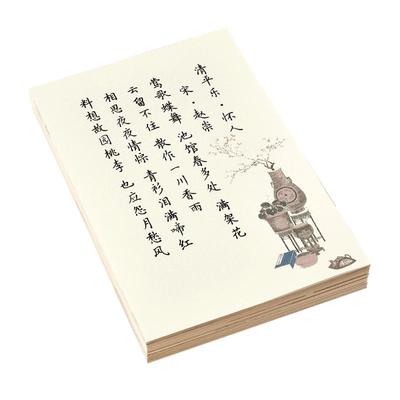 清平乐·怀人
宋·赵崇
莺歌蝶舞 池馆春多处 满架花
云留不住 散作一川香雨
相思夜夜情悰 青衫泪满啼红
料想故园桃李 也应怨月愁风